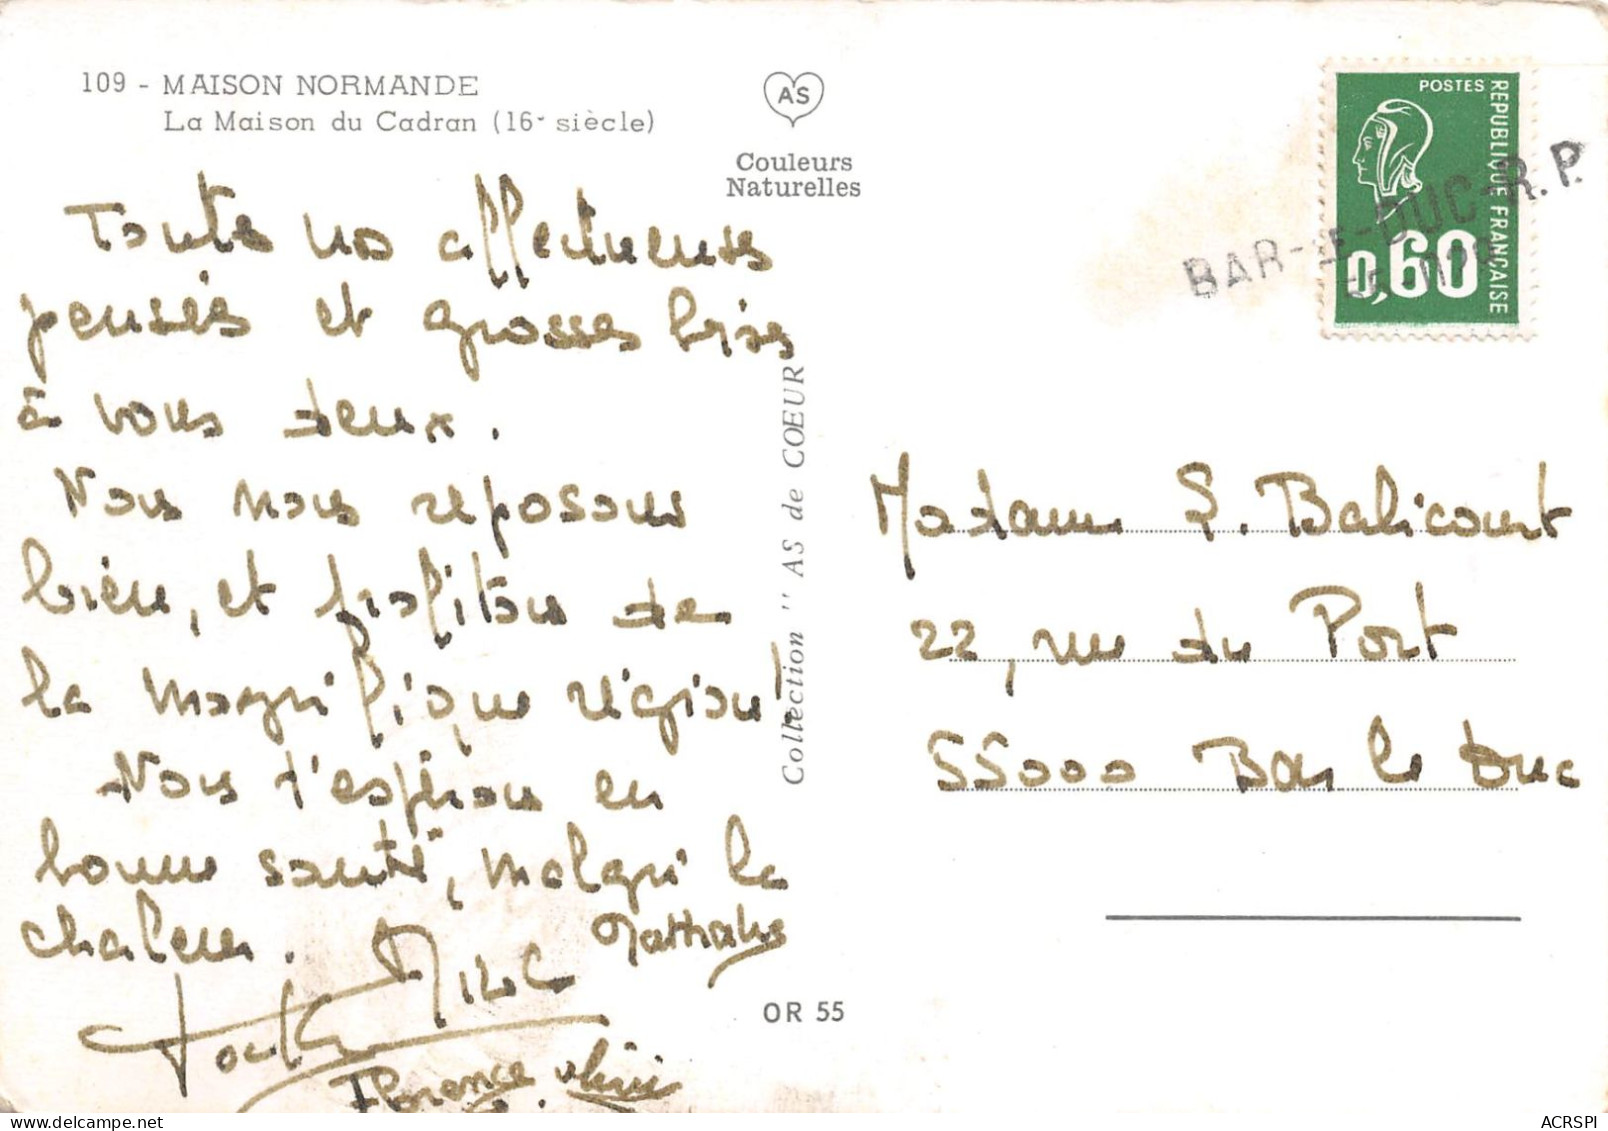 109 - MAISON NORMANDE
La Maison du Cadran (16e siècle)
AS
Couleurs
Naturelles
Toutes nos affectueuses
pensées et grosses bises
à vous deux.
Nous nous reposons
bien, et profitons de
la magnifique région !
Nous t'espérons en
bonne santé, malgré la
chaleur.
Nathalie
Florence
Collection " AS de CŒUR
OR 55
POSTES
REPUBLIQUE FRANÇAISE
0,60
BAR-le-DUC-R.P.
Madame S. Balicourt
22, rue du Port
55000 Bar le Duc
ACRSPI